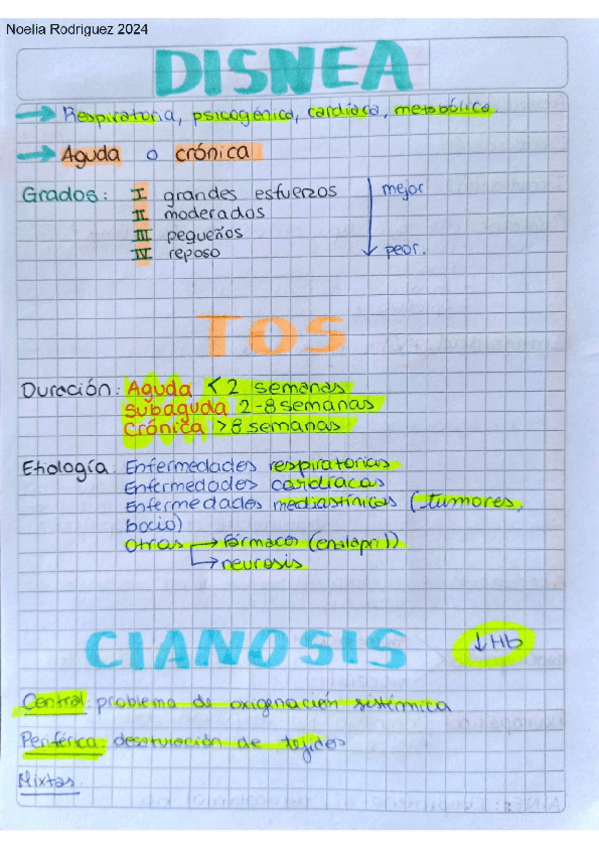 Noelia Rodriguez 2024
DISNEA
→ Respiratoria, psicogénica, cardíaca, metabólica
→ Aguda o crónica
Grados: I grandes esfuerzos mejor
II moderados
III pequeños
IV reposo peor.
TOS
Duración: Aguda < 2 semanas
Subaguda 2-8 semanas
Crónica >8 semanas
Etiología: Enfermedades respiratorias
Enfermedades cardíacas
Enfermedades mediastínicas (tumores,
bocio)
Otras → fármacos (enalapril)
→ neurosis
CIANOSIS ↓Hb
Central: problema de oxigenación sistémica
Periférica: desaturación de tejidos
Mixtas